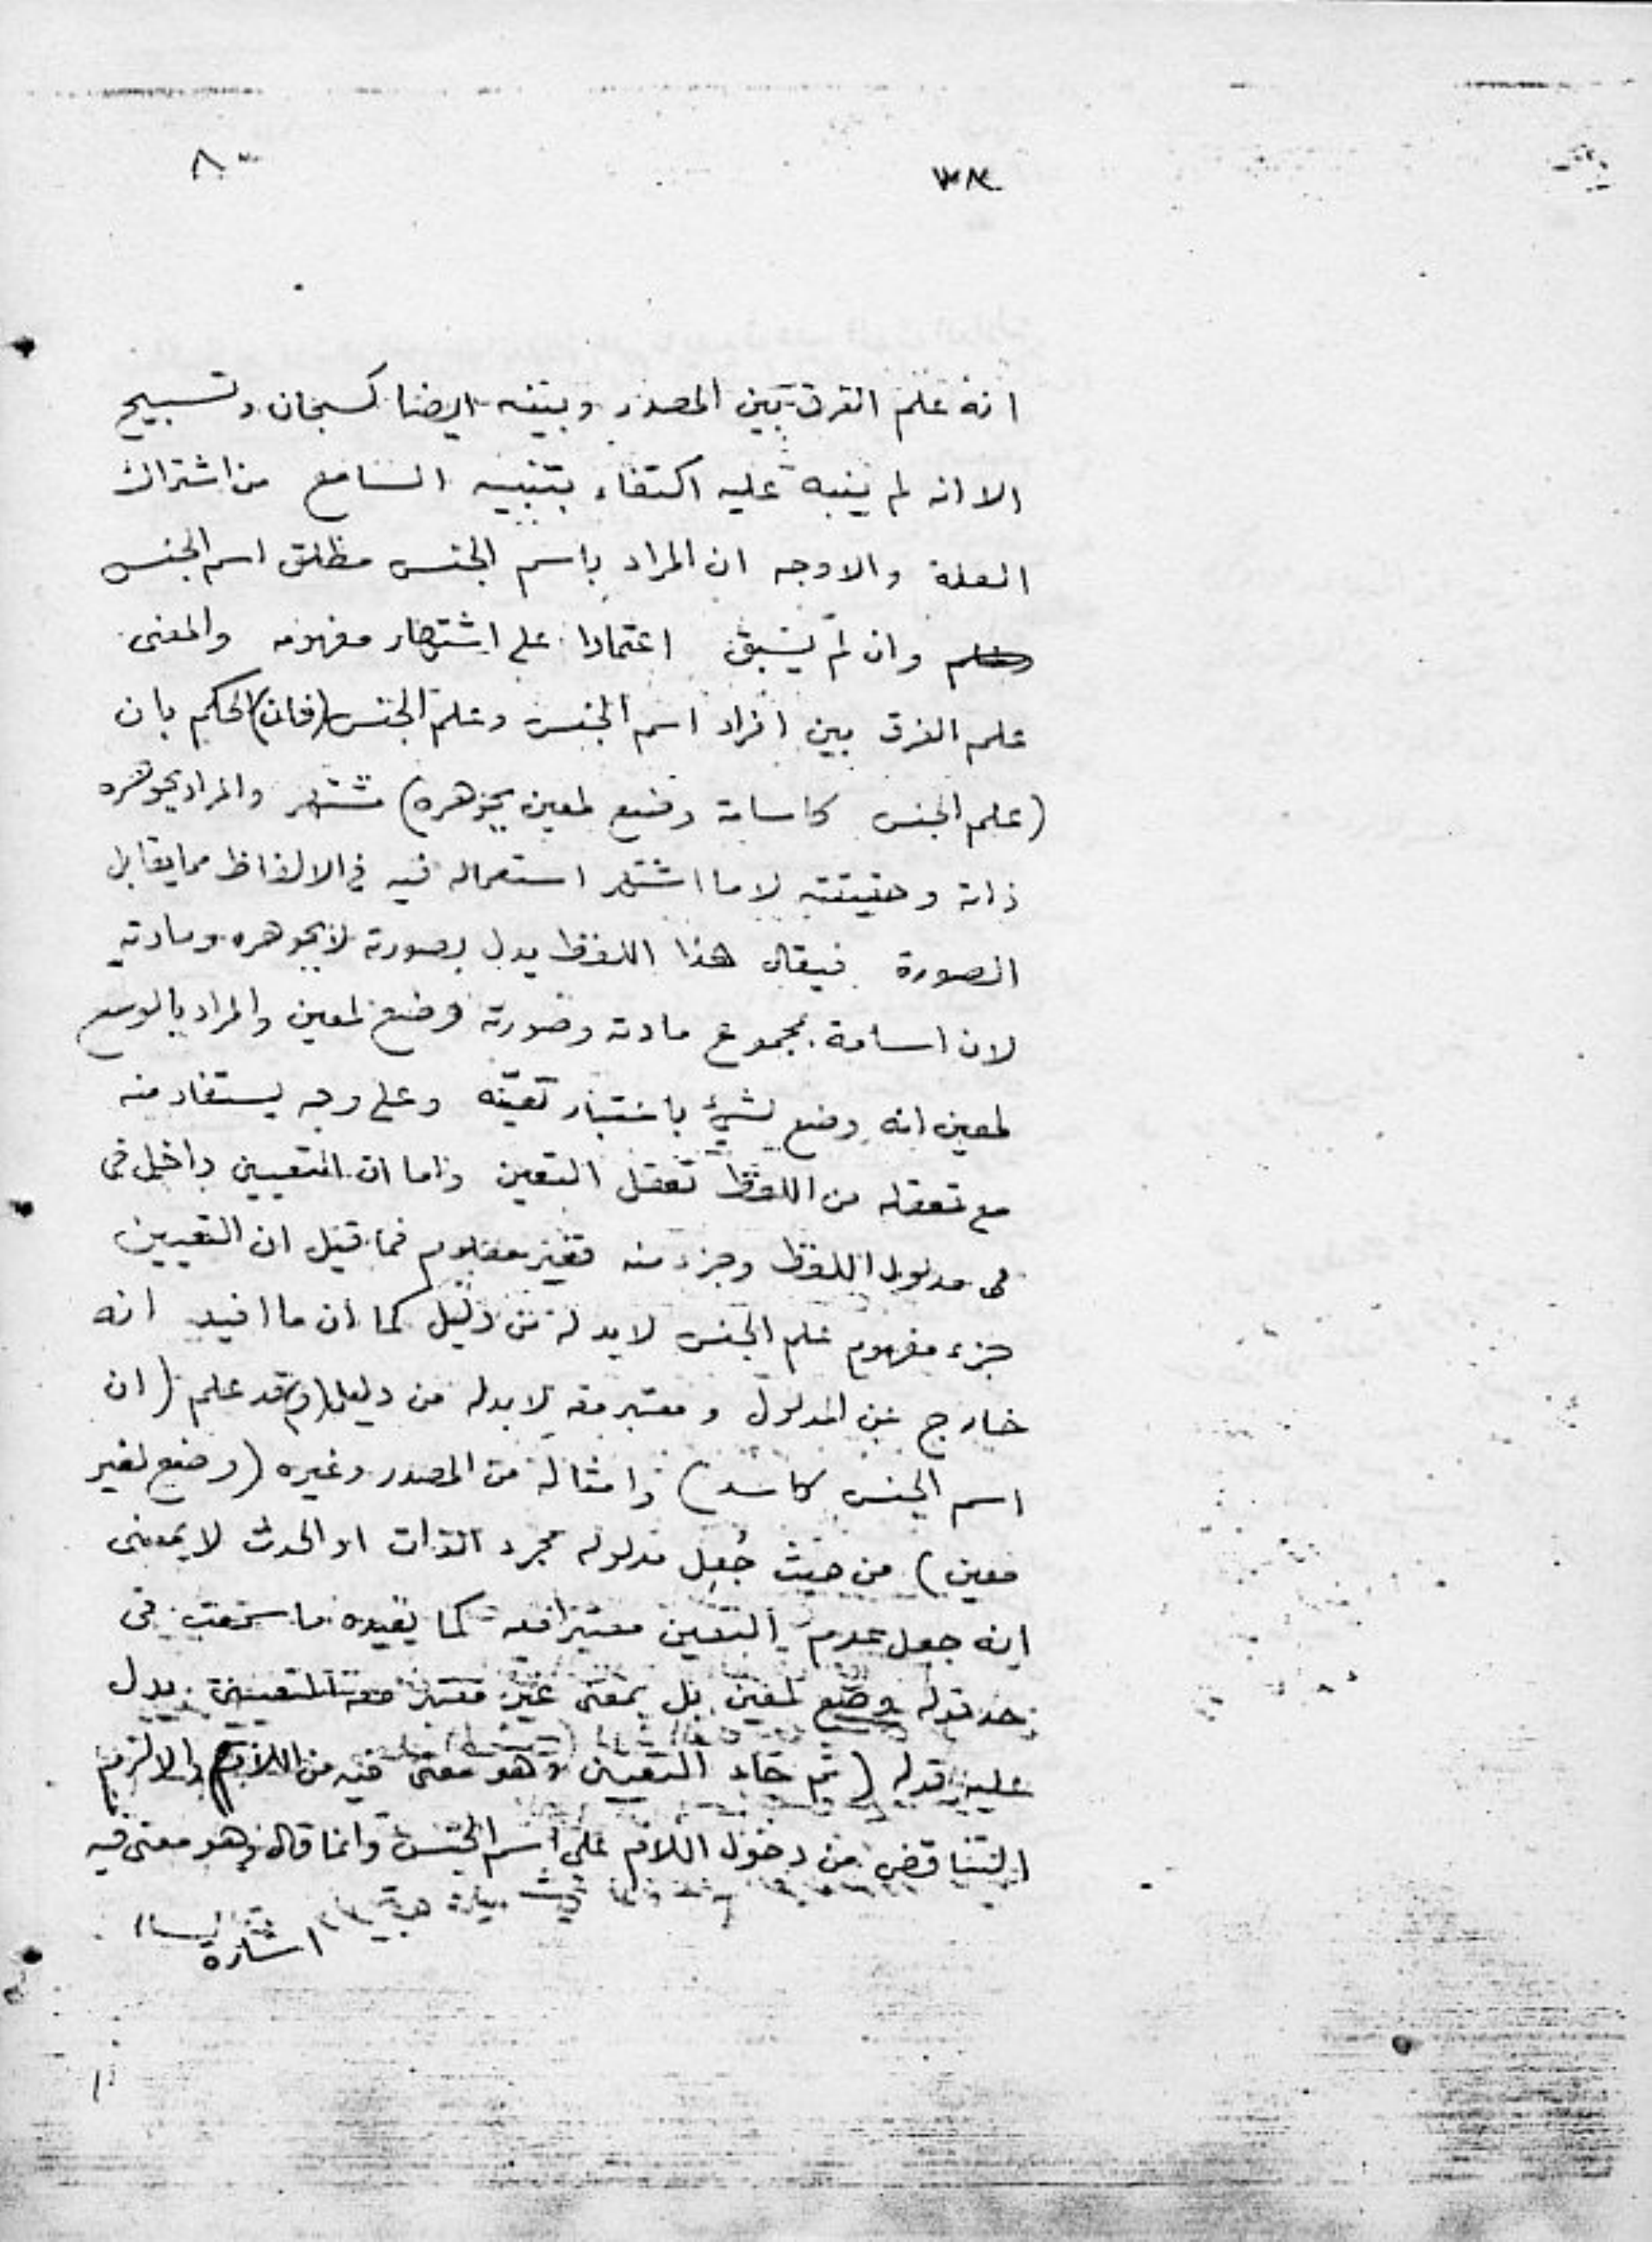 ٣٨
انه علم الفرق بين المصدر وبينه ايضا كسبحان وتسبيح
الا انه لم ينبه عليه اكتفاء بتنبيه السامع من اشتراك
العلة والاوجه ان المراد باسم الجنس مطلق اسم الجنس
وان لم يسبق اعتمادا على اشتهار مفهومه والمعنى
علم الفرق بين افراد اسم الجنس وعلم الجنس (فان) الحكم بان
(علم الجنس كاسامة وضع لمعين بجوهره) مشتهر والمراد بجوهره
ذاته وحقيقته لا ما اشتهر استعماله فيه في الالفاظ مما يقابل
الصورة فيقال هذا اللفظ يدل بصورته لا بجوهره ومادته
لان اسامة بمجموع مادته وصورته وضع لمعين والمراد بالوضع
لمعين انه وضع لشيء باعتبار تعينه وعلى وجه يستفاد منه
مع تعقله من اللفظ تعقل التعين واما ان التعيين داخل في
في مدلول اللفظ وجزء منه فغير معلوم فما قيل ان التعيين
جزء مفهوم علم الجنس لا بد له من دليل كما ان ما افيد انه
خارج عن المدلول ومعتبر معه لا بد له من دليل (و) قد علم (ان
اسم الجنس كاسد) وامثاله من المصدر وغيره (وضع لغير
معين) من حيث جُعل مدلوله مجرد الذات او الحدث لا بمعنى
انه جعل عدم التعين معتبرا فيه كما يفيده ما سمعت في
حد قوله وضع لمعين بل بمعنى غير معتبر معه التعيين يدل
عليه قوله (ثم جاء التعيين وهو معنى فيه من اللام) والا لزم
التناقض من دخول اللام على اسم الجنس وانما قال وهو معنى فيه
اشارة